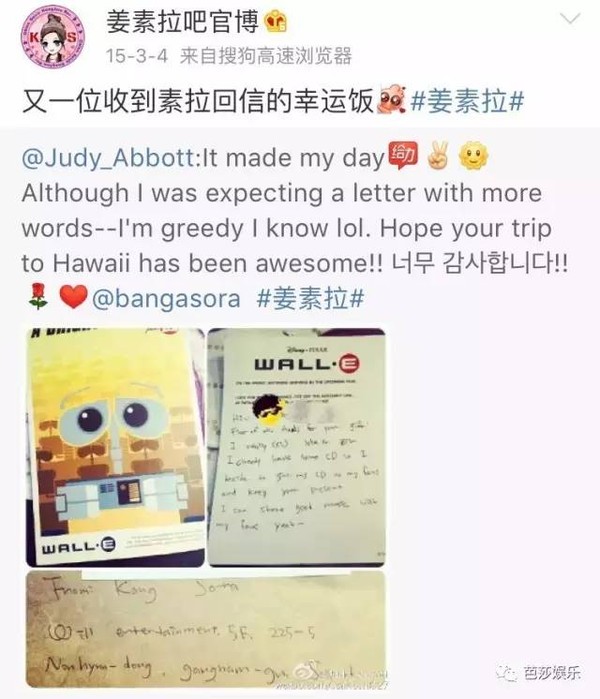 姜素拉吧官博
15-3-4 来自搜狗高速浏览器
又一位收到素拉回信的幸运饭 #姜素拉#
@Judy_Abbott:It made my day 给力
Although I was expecting a letter with more
words--I'm greedy I know lol. Hope your trip
to Hawaii has been awesome!! 너무 감사합니다!!
@bangasora #姜素拉#
WALL·E
Disney·PIXAR
WALL·E
First of all thanks for your gift
I really
I already have some CD so I
decide to give my CD to my fans
and keep your present
I can share good music with
my fans yeah~
From: Kang Sora
entertainment, 5F, 225-5
Nonhyun-dong, gangnam-gu, Seoul
芭莎娱乐